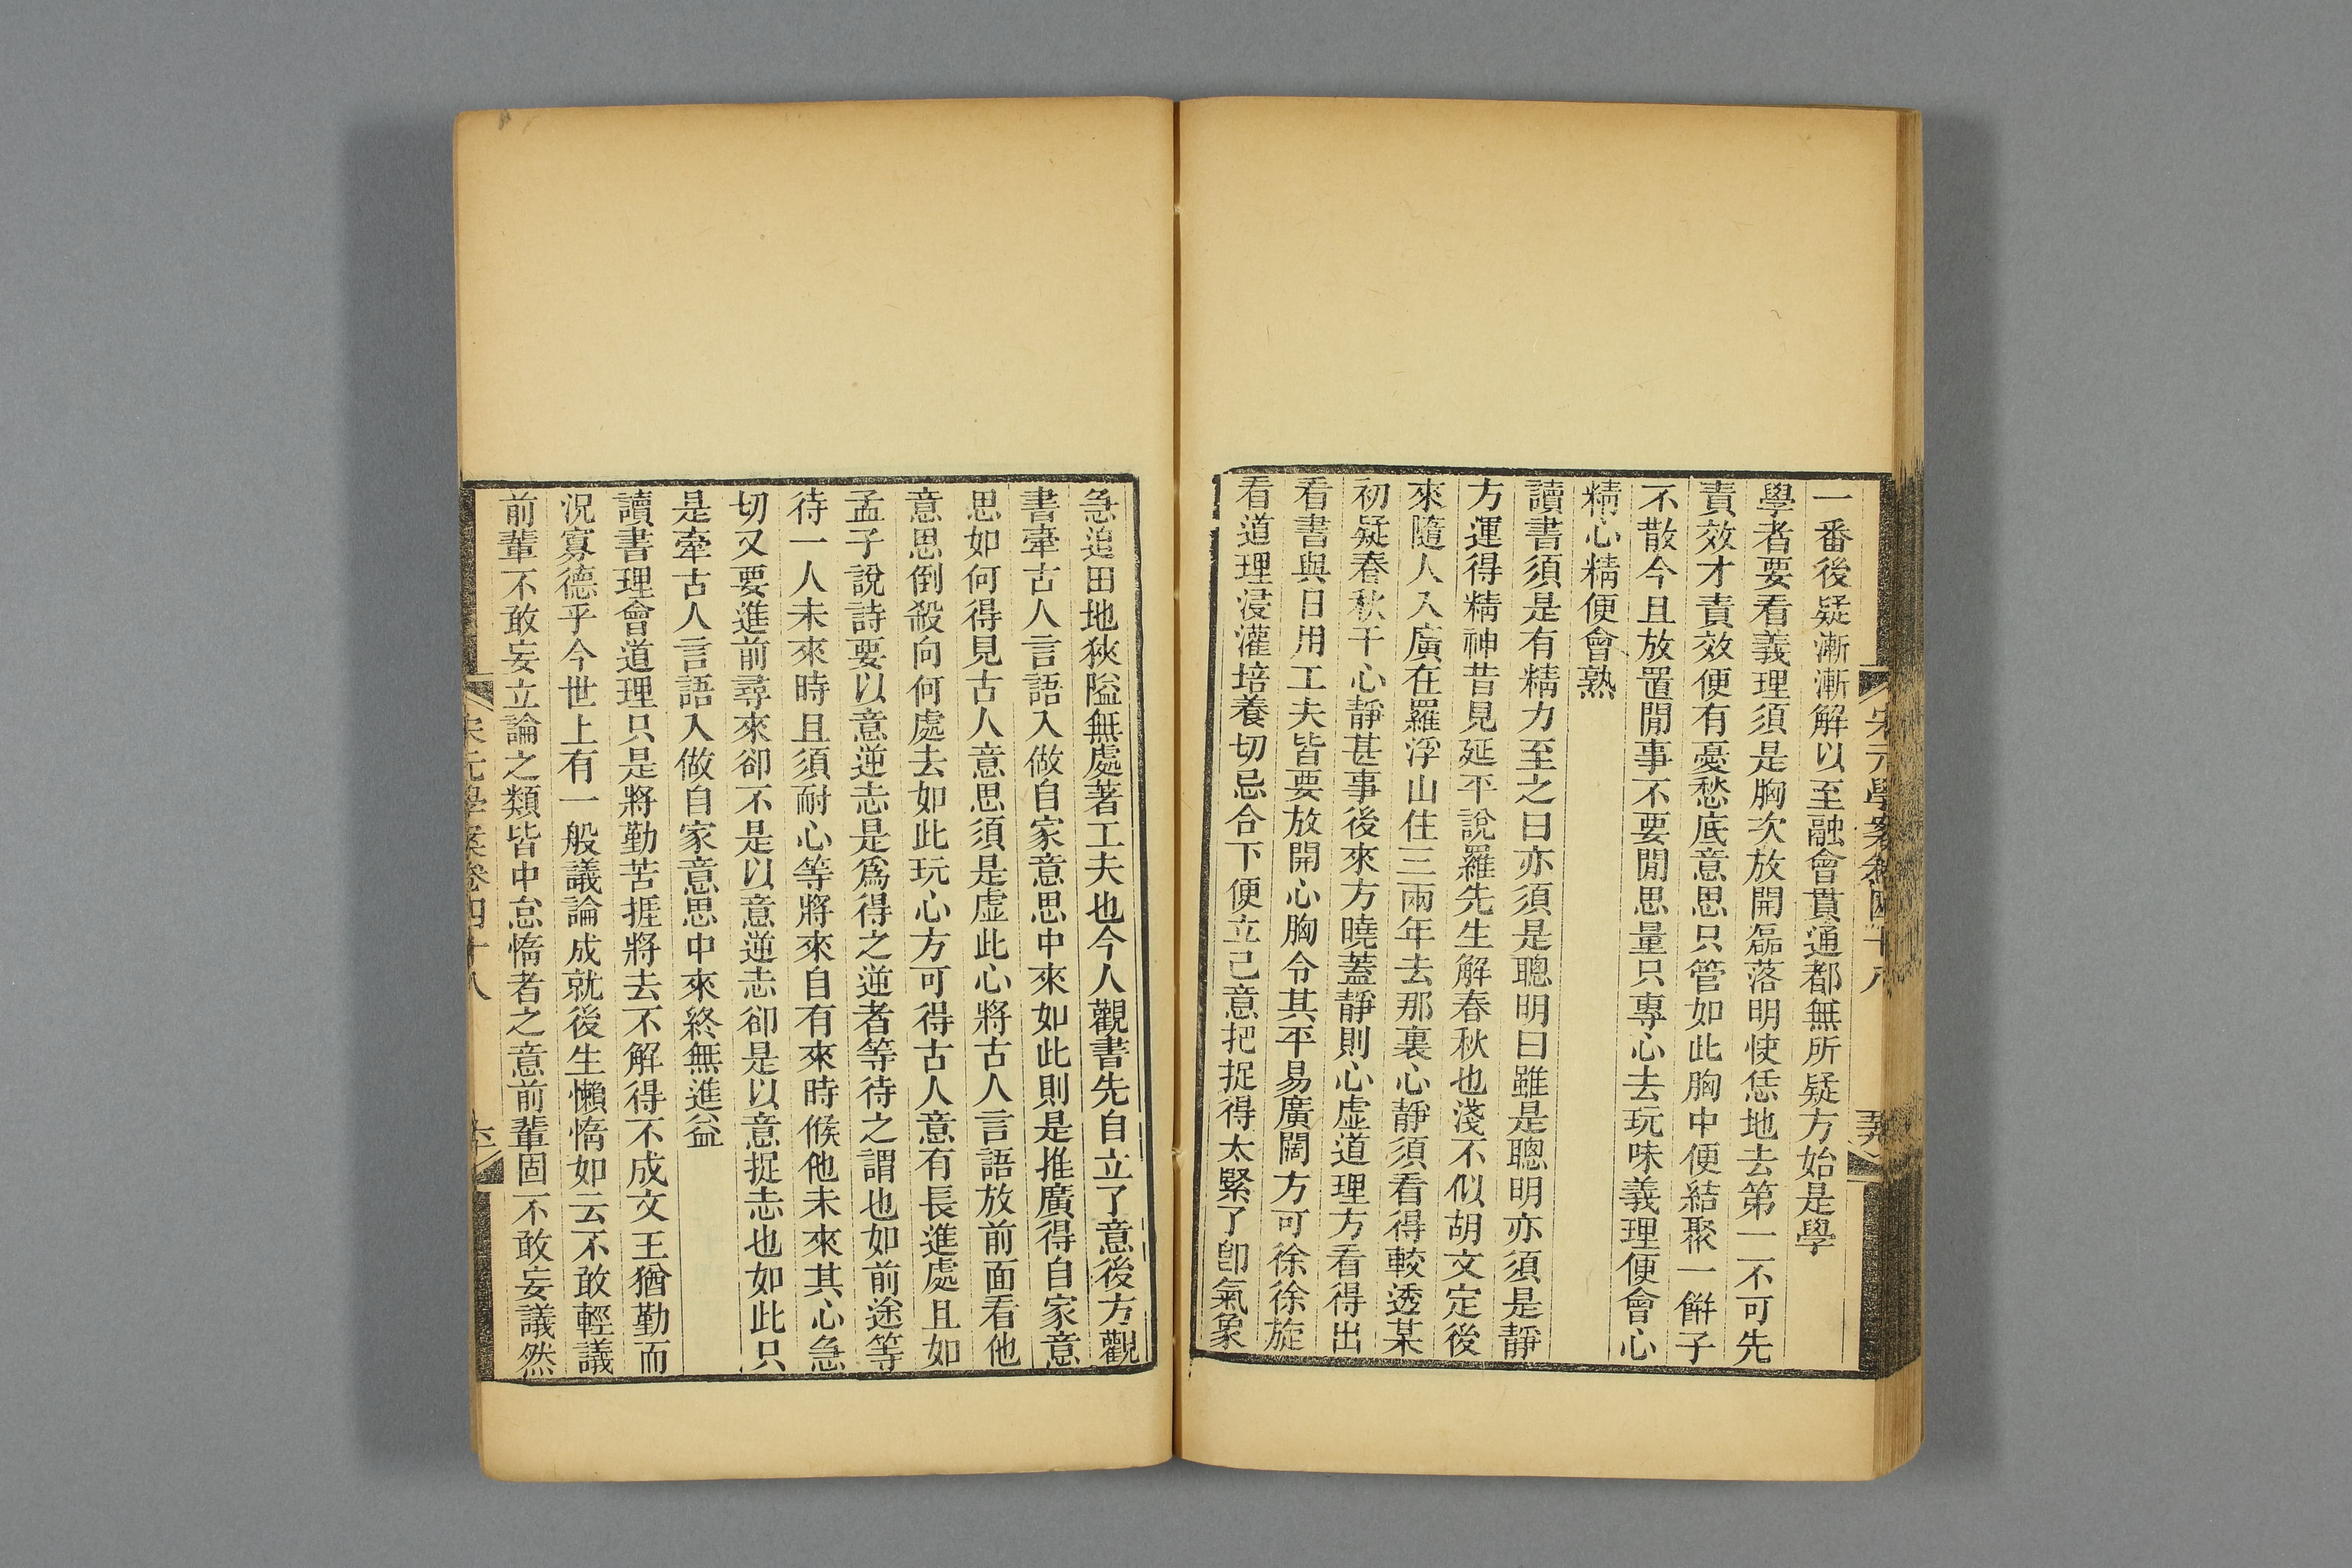 一番後疑漸漸解以至融會貫通都無所疑方始是學
學者要看義理須是胸次放開磊落明快恁地去第一不可先
責效才責效便有憂愁底意思只管如此胸中便結聚一餅子
不散今且放置閒事不要閒思量只專心去玩味義理便會心
精心精便會熟
讀書須是有精力至之曰亦須是聰明曰雖是聰明亦須是靜
方運得精神昔見延平說羅先生解春秋也淺不似胡文定後
來隨人入廣在羅浮山住三兩年去那裏心靜須看得較透某
初疑春秋干心靜甚事後來方曉蓋靜則心虛道理方看得出
看書與日用工夫皆要放開心胸令其平易廣闊方可徐徐旋
看道理浸灌培養切忌合下便立己意把捉得太緊了卽氣象
急迫田地狹隘無處著工夫也今人觀書先自立了意後方觀
書牽古人言語入做自家意思中來如此則是推廣得自家意
思如何得見古人意思須是虛此心將古人言語放前面看他
意思倒殺向何處去如此玩心方可得古人意有長進處且如
孟子說詩要以意逆志是爲得之逆者等待之謂也如前途等
待一人未來時且須耐心等將來自有來時候他未來其心急
切又要進前尋來卻不是以意逆志卻是以意捉志也如此只
是牽古人言語入做自家意思中來終無進益
讀書理會道理只是將勤苦捱將去不解得不成文王猶勤而
況寡德乎今世上有一般議論成就後生懶惰如云不敢輕議
前輩不敢妄立論之類皆中怠惰者之意前輩固不敢妄議然
宋元學案卷四十八